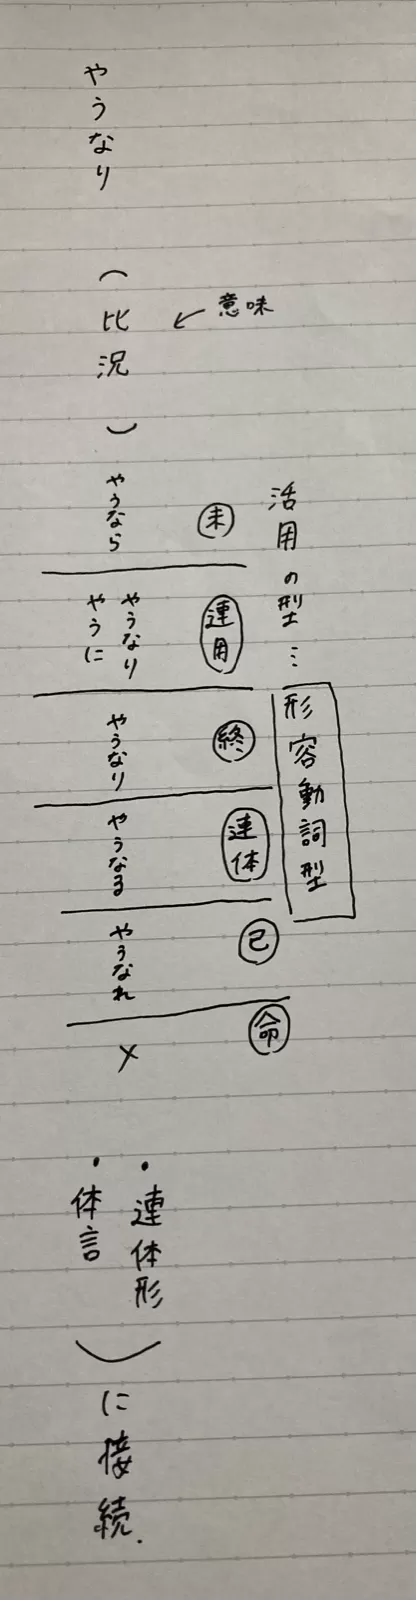 やうなり
（比況）
意味
活用の型…形容動詞型
未
やうなら
連用
やうなり
やうに
終
やうなり
連体
やうなる
已
やうなれ
命
×
・連体形
・体言
に接続.